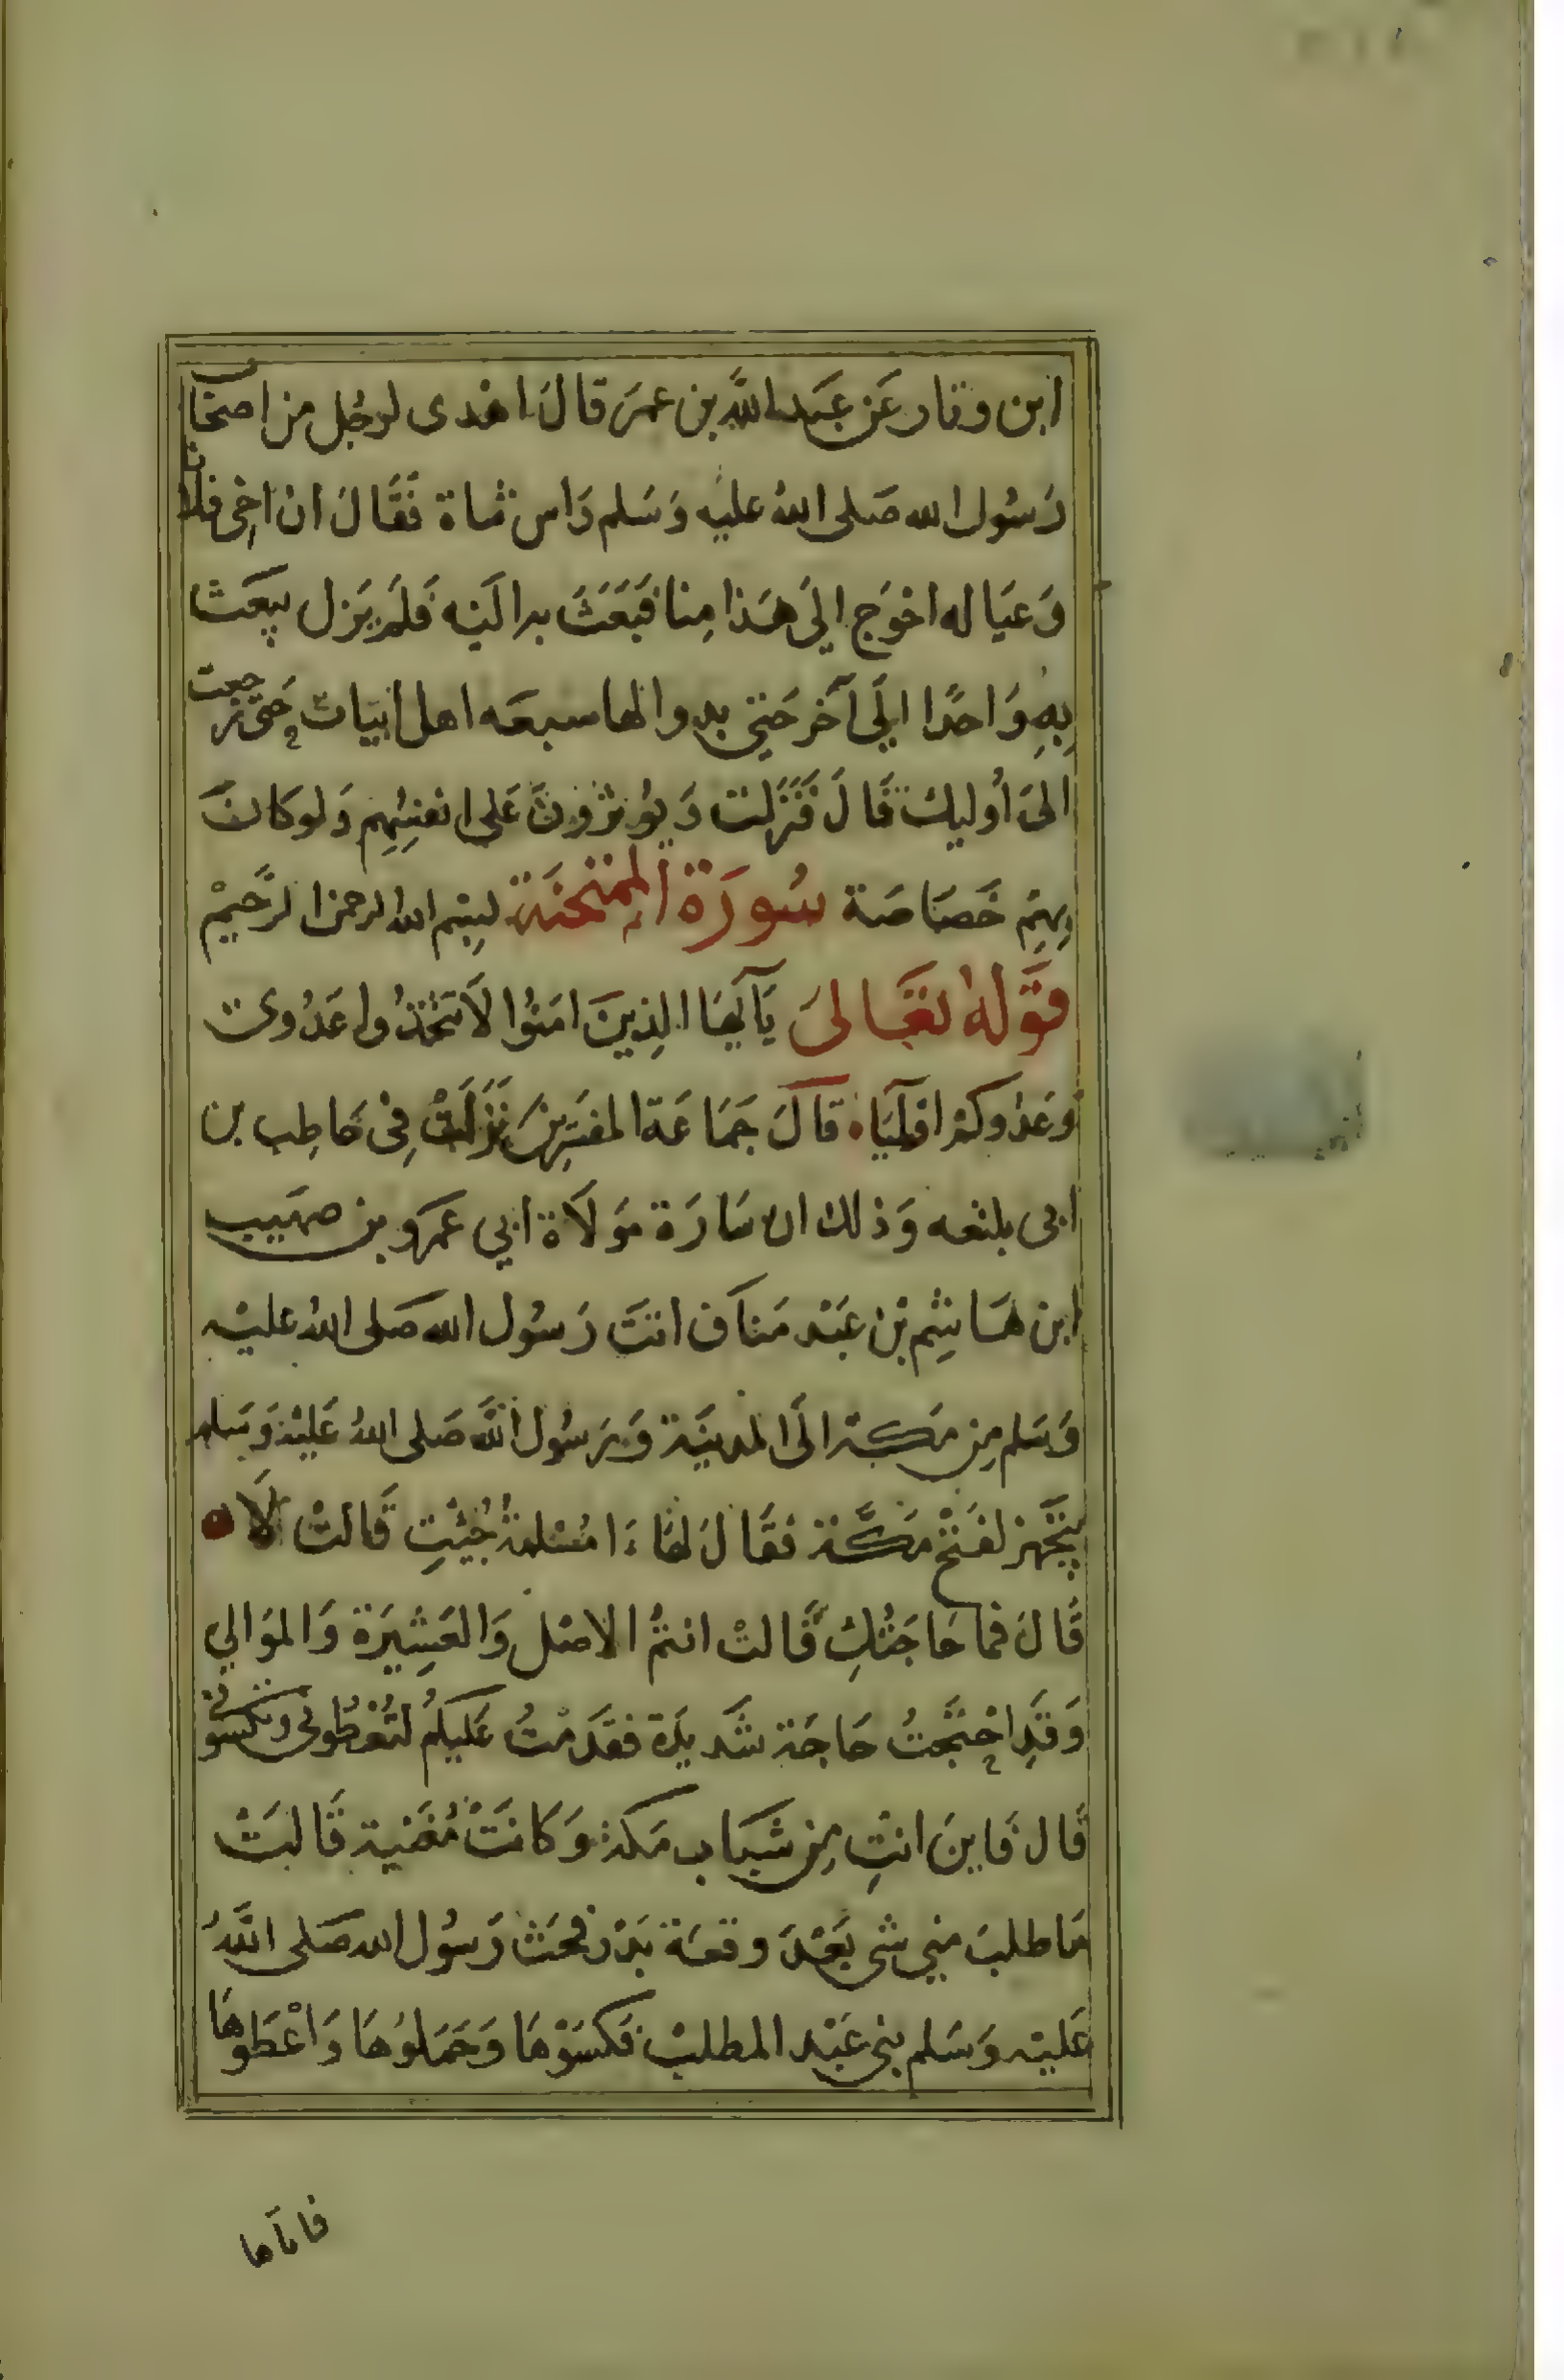 ابن دثار عَن عَبَد اللَّه بن عمَر قالَ اهْدى لرجُل من اصحَاب
رَسُول الله صَلى اللهُ عليْه وَسَلم رَاس شاة فَقَالَ ان اخِى فلانا
وَعيَاله احْوَج الىَ هَذا مِنا فبَعَثَ به الَيْه فَلَم يَزل يبعَث
بِهِ وَاحدًا الىَ آخَر حَتىّ تداولها سبعَه اهل ابيَات حَتىّ رجعت
الىَ أُوليك قَالَ فَنَزَلت وَيؤثرُونَ عَلى انفسِهِم وَلو كانَ
بِهِم خَصَاصَة سُورَة المِمتَحنَة بِسْم الله الرحمن الرَّحيمْ
قَوله تعَالىَ يَآ أيهَا الذِينَ امَنوُا لاَ تَتخّذُوا عَدُوى
وَعدُوكمْ اوليَاء قالَ جَمَاعَة المفسِرينَ نَزَلَتْ فِى حَاطِب بن
ابى بلتعه وَذلك ان سَارَة مَولاَة ابي عَمرو بن صهَيب
ابن هَاشِم بْن عَبْد مَناف اتتَ رَسُول الله صَلى اللهُ عليْه
وَسَلم مِن مَكة الىَ المدينَة وَرَسُول اللَّه صَلى اللهُ عَليْه وَسَلم
يَتجَهز لفَتْح مَكَّة فقَالَ لهَا ءَامُسْلمةُ جُيْتِ قَالتْ لاَ
قَالَ فما حَاجَتُكِ قَالتْ انتمُ الاصْل وَالعَشِيرَة وَالموَالي
وَقَدِ احْتَجتُ حَاجَة شَديدَة فقَدَمْتُ عَليكمُ لتُعْطُونى وتكسُونى
قَال فَاينَ انتِ مِن شَبَاب مَكة وَكَانَتْ مُغَنية قَالتَْ
مَا طلبَ مني شى بَعْدَ وقعَة بَدْر فحَثَ رَسُول الله صَلى اللَّهُ
عَليْه وَسَلم بنى عَبْد المطلبْ فكسَوْهَا وَحَمَلوُهَا وَاعْطَوهَا
فاتاها